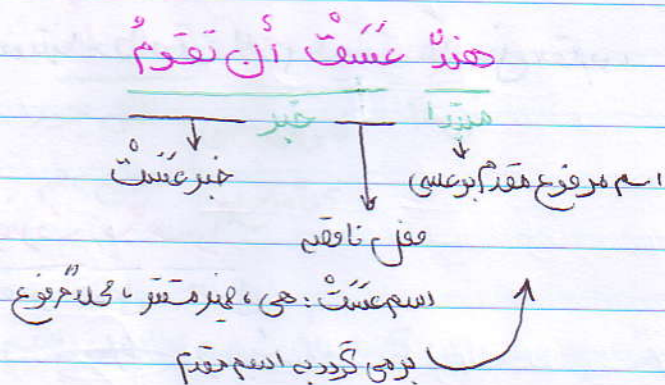 هندٌ عَسَتْ أن تقومُ
مبتدا خبر
اسم مرفوع مقدم بر عسی
خبر عَسَتْ
فعل ناقصه
اسم عَسَتْ: هی، ضمیر مستتر، محلاً مرفوع
بر می گردد به اسم مقدم